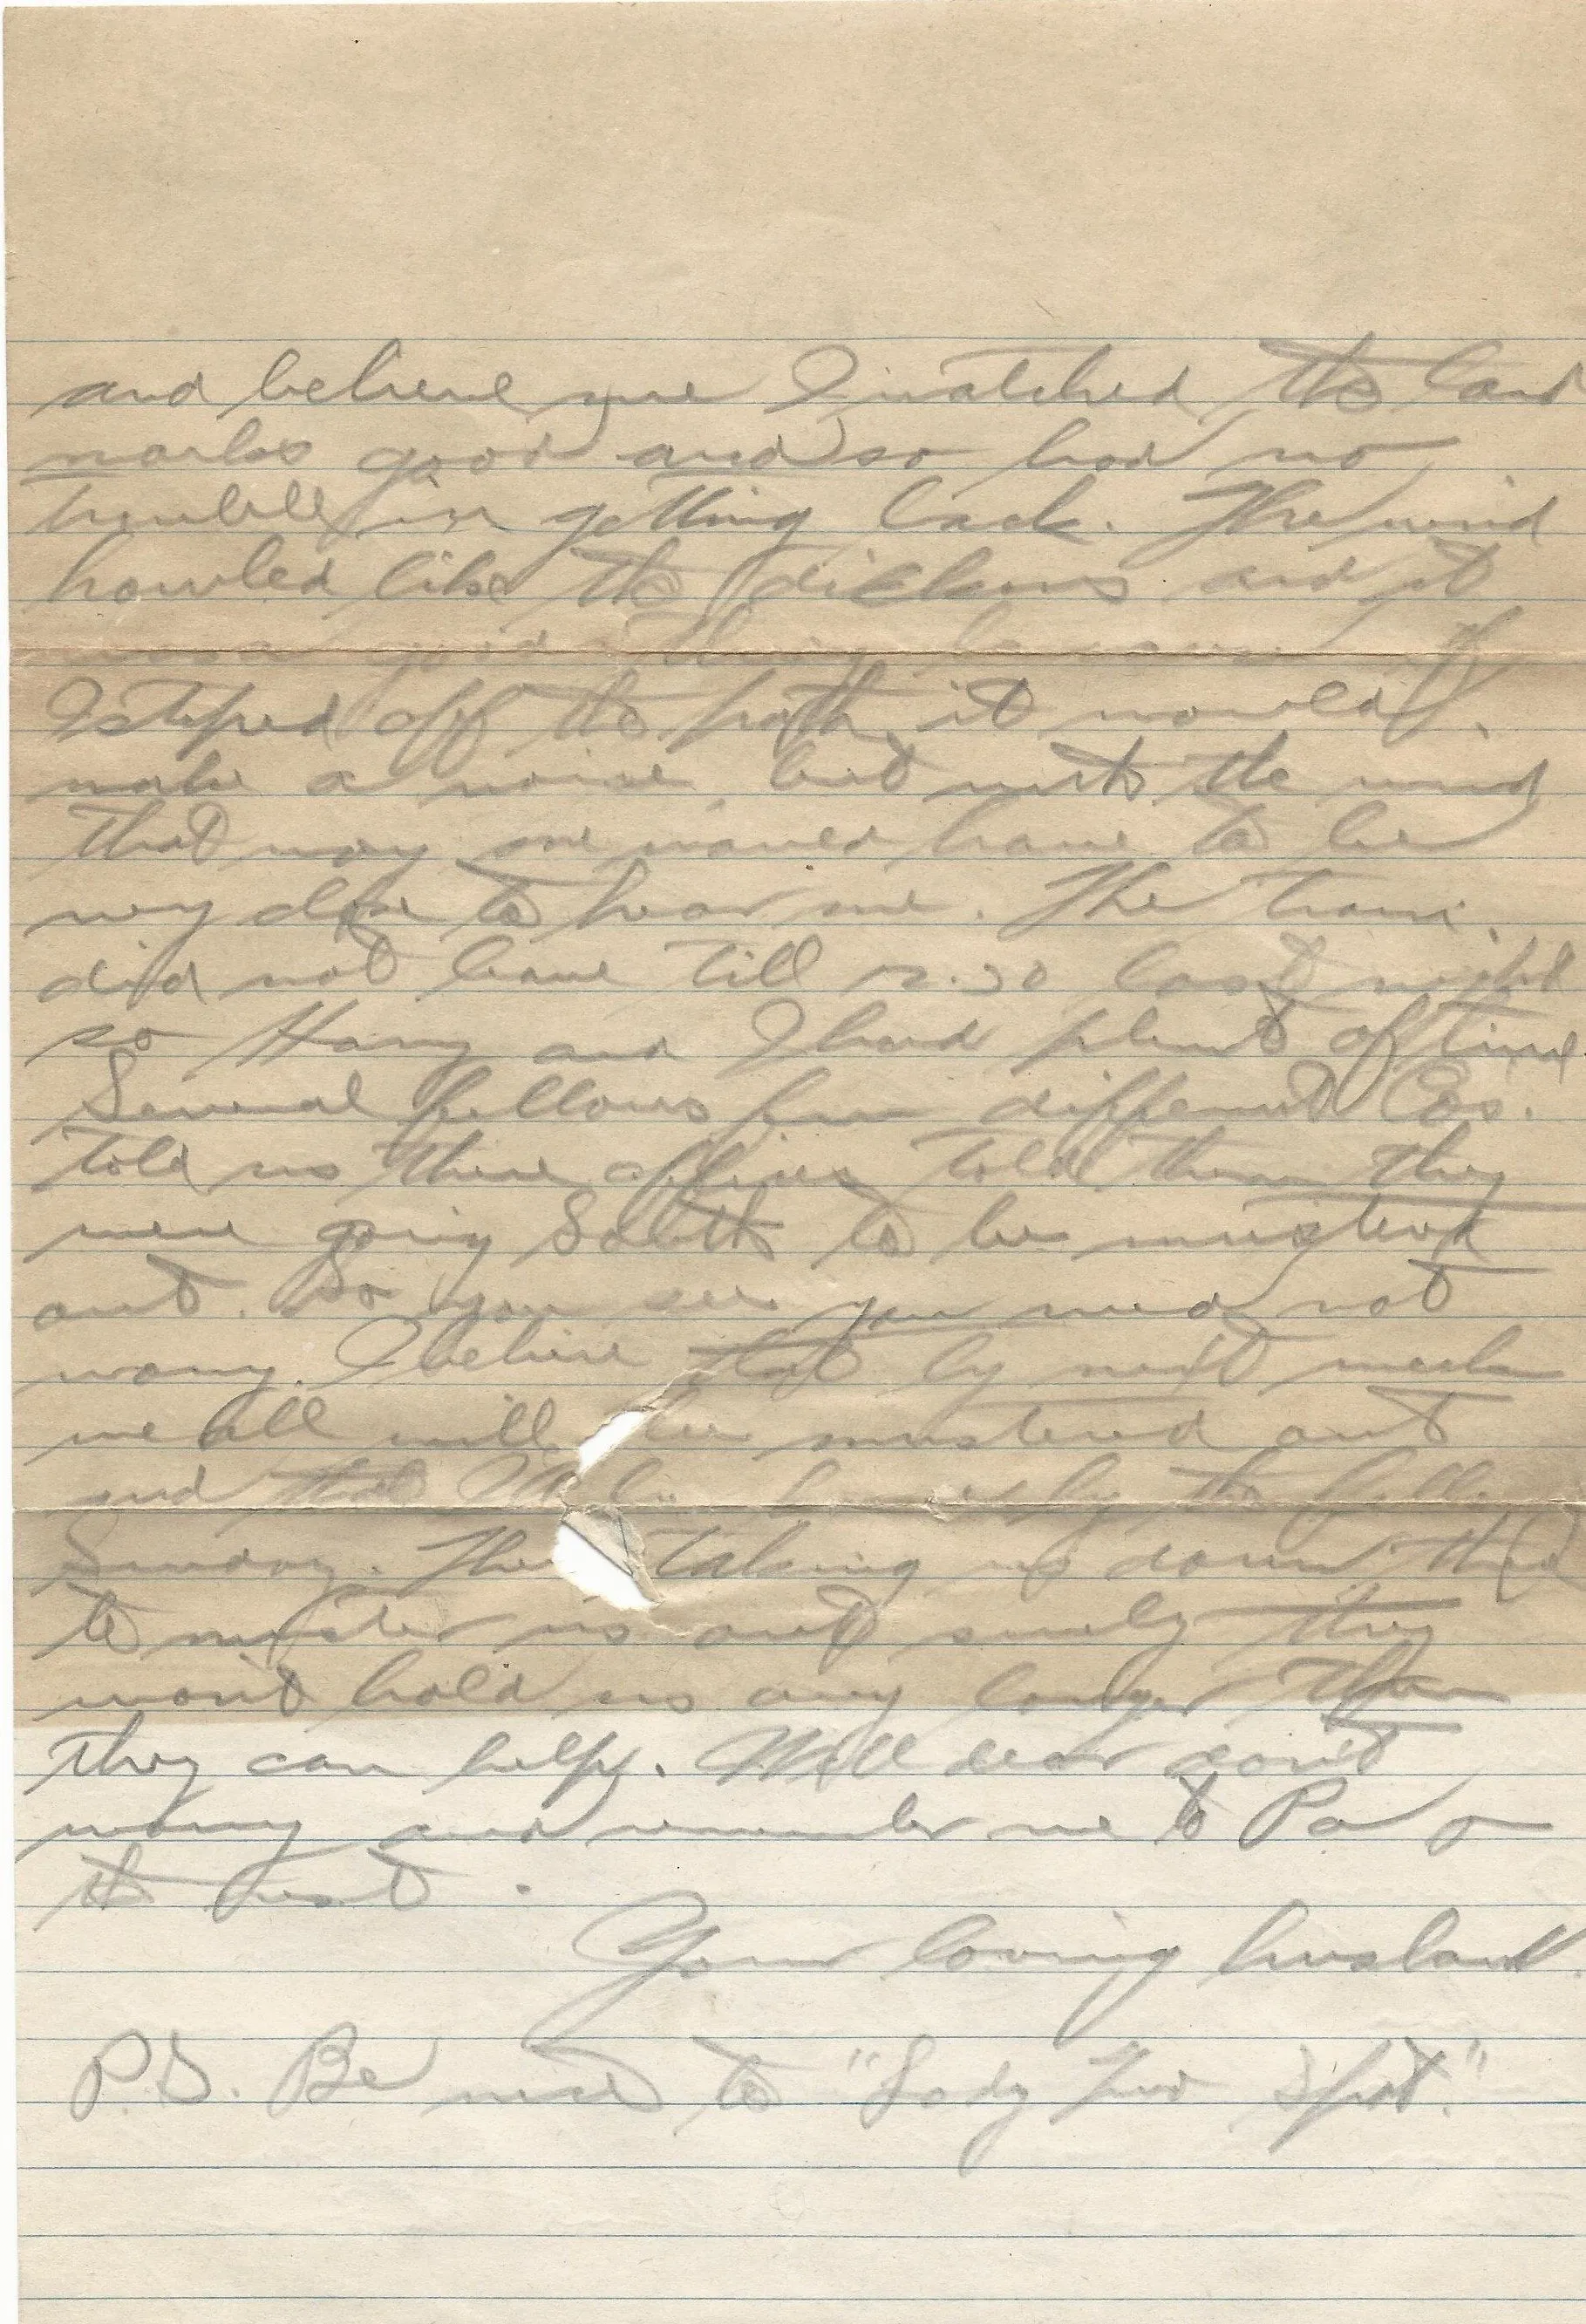 and believe me I watched the land
marks good and so had no
trouble in getting back. The wind
howled like the dickens and it
was a good thing because if
I steped off the path it would
make a noise but with the wind
that way one would have to be
very close to hear me. The train
did not leave till last night
so Harry and I had plenty of time
Several fellows from different Cos.
told us there officers told them they
were going South to be mustered
out. So you see you need not
worry. I believe that by next week
we all will be mustered out
and that by the
Sunday. taking us down there
to muster us out surely they
won't hold us any longer than
they can help. Well dear don't
worry and remember me to Pa
the rest.
Your loving husband.
P.S. Be nice to "Lady Two Spot."